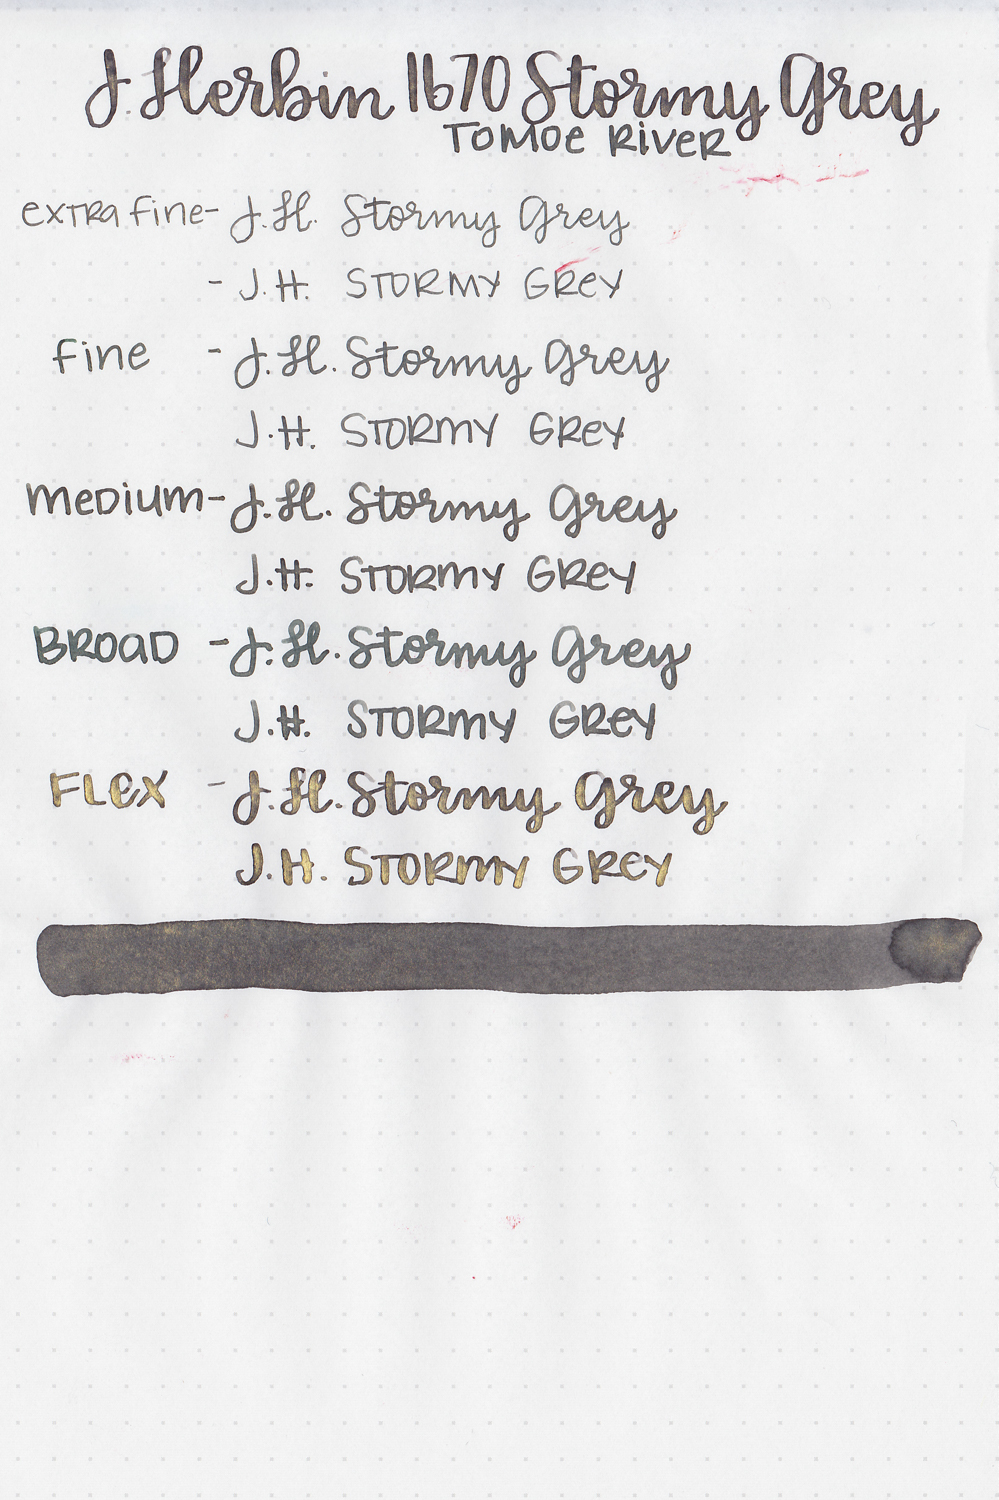 J. Herbin 1670 Stormy Grey
Tomoe River
extra fine - J.H. Stormy Grey
- J.H. STORMY GREY
fine - J.H. Stormy Grey
J.H. STORMY GREY
medium - J.H. Stormy Grey
J.H. STORMY GREY
BROAD - J.H. Stormy Grey
J.H. STORMY GREY
FLEX - J.H. Stormy Grey
J.H. STORMY GREY